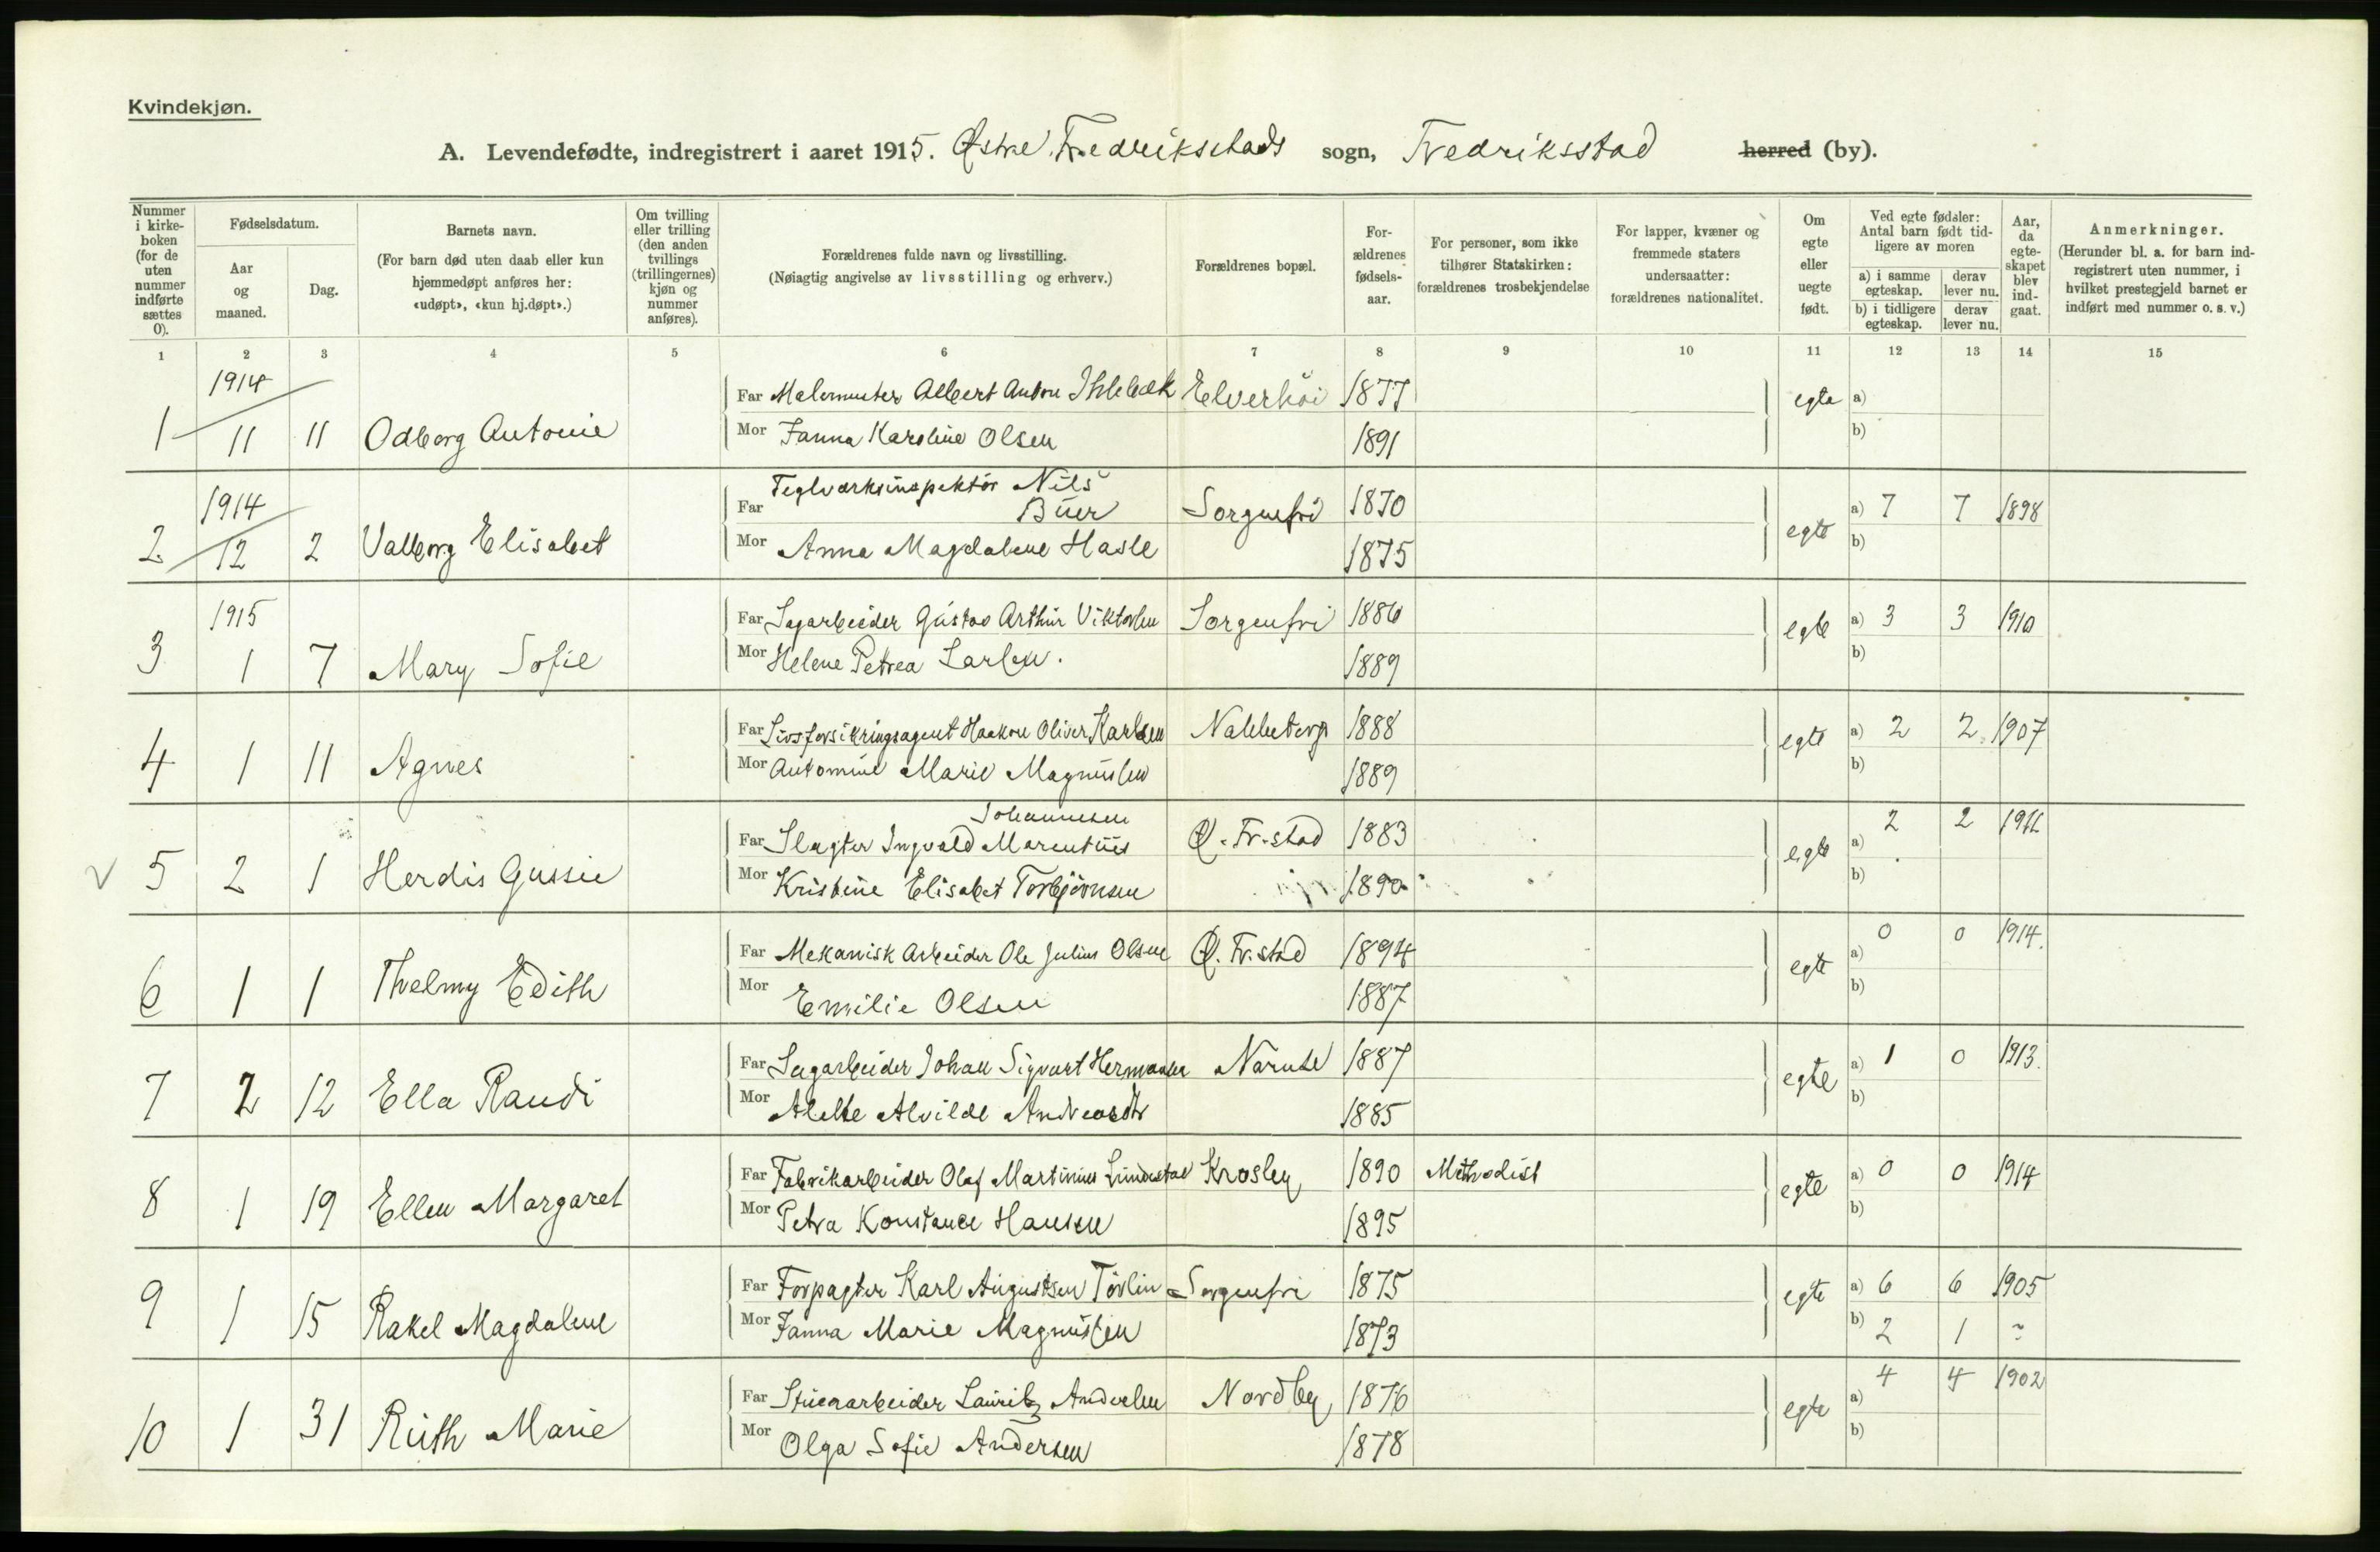 Kvindekjøn.
A. Levendefødte, indregistrert i aaret 1915. Østre Fredrikstads sogn, Fredriksstad herred (by).
Nummer i kirke-boken (for de uten nummer indførte sættes 0).
Fødselsdatum.
Aar og maaned.
Dag.
Barnets navn.
(For barn død uten daab eller kun hjemmedøpt anføres her: «udøpt», «kun hj.døpt».)
Om tvilling eller trilling (den anden tvillings (trillingernes) kjøn og nummer anføres).
Forældrenes fulde navn og livsstilling.
(Nøiagtig angivelse av livsstilling og erhverv.)
Forældrenes bopæl.
For-ældrenes fødsels-aar.
For personer, som ikke tilhører Statskirken: forældrenes trosbekjendelse
For lapper, kvæner og fremmede staters undersaatter: forældrenes nationalitet.
Om egte eller uegte født.
Ved egte fødsler: Antal barn født tid-ligere av moren
a) i samme egteskap.
derav lever nu.
b) i tidligere egteskap.
derav lever nu.
Aar, da egte-skapet blev ind-gaat.
Anmerkninger.
(Herunder bl. a. for barn ind-registrert uten nummer, i hvilket prestegjeld barnet er indført med nummer o. s. v.)
1 2 3 4 5 6 7 8 9 10 11 12 13 14 15
1914
Far Malermester Albert Anton Ihlebæk Elverhöi 1877 egte a)
1 11 11 Odborg Antonie
Mor Janna Karoline Olsen 1891 b)
1914
Far Teglværksinspektör Nils Buer Sorgenfri 1870 egte a) 7 7 1898
2 12 2 Valborg Elisabet
Mor Anna Magdalene Hasle 1875 b)
1915
Far Sagarbeider Gustav Arthur Viktorsen Sorgenfri 1886 egte a) 3 3 1910
3 1 7 Mary Sofie
Mor Helene Petrea Larsen. 1889 b)
Far Livsforsikringsagent Haakon Oliver Karlsen Nabbetorp 1888 egte a) 2 2 1907
4 1 11 Agnes
Mor Antomine Marie Magnussen 1889 b)
Johannesen
Far Slagter Ingvald Marentius Ø. Fr.stad 1883 egte a) 2 2 1911
V 5 2 1 Herdis Gussie
Mor Kristine Elisabet Torbjörnsen 1890 b)
Far Mekanisk Arbeider Ole Julius Olsen Ø. Fr.stad 1894 egte a) 0 0 1914.
6 1 1 Thelmy Edith
Mor Emilie Olsen 1887 b)
Far Sagarbeider Johan Sigvart Hermansen 1887 egte a) 1 0 1913.
7 2 12 Ella Randi
Mor Alette Alvilde Andreasdtr 1885 b)
Far Fabrikarbeider Olaf Martinius Lundestad Krosby 1890 Methodist egte a) 0 0 1914
8 1 19 Ellen Margaret
Mor Petra Konstance Hansen 1895 b)
Far Forpagter Karl Augustsen Törlin Sorgenfri 1875 egte a) 6 6 1905
9 1 15 Rakel Magdalene
Mor Janna Marie Magnussen 1873 b) 2 1 ~
Far Stuerarbeider Lauritz Andersen Nordby 1876 egte a) 4 4 1902
10 1 31 Ruth Marie
Mor Olga Sofie Andersen 1878 b)